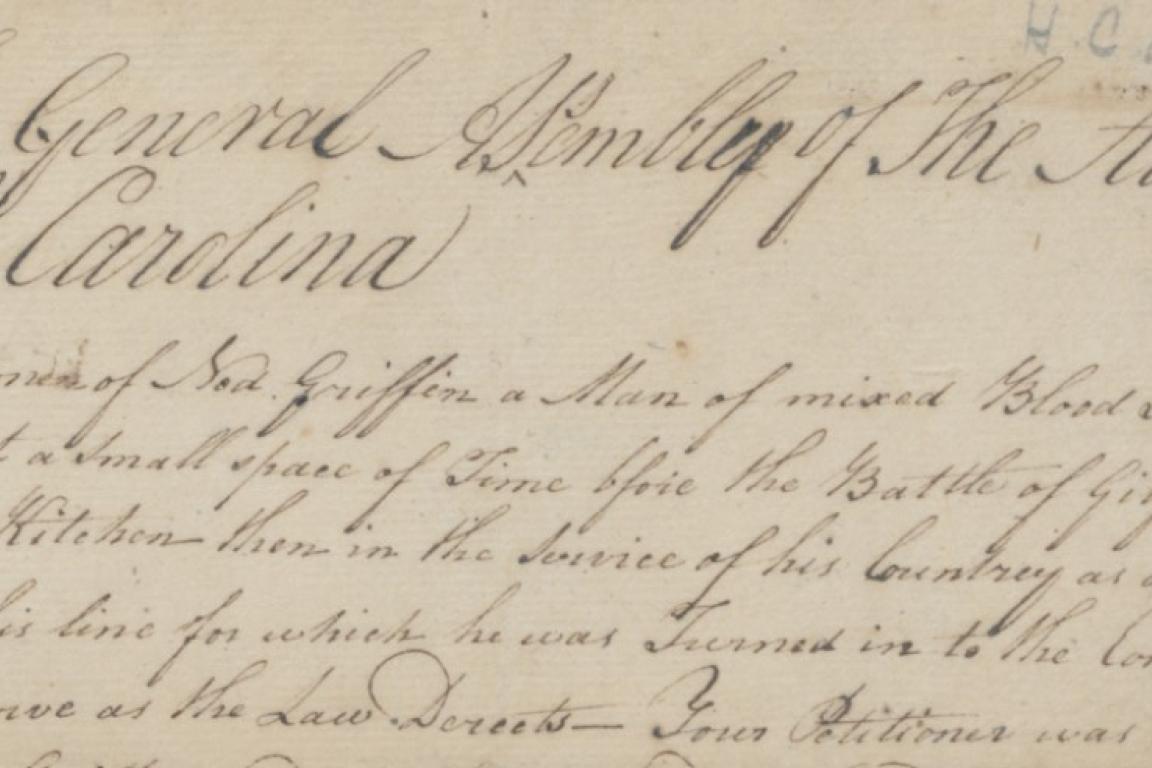 H.C.
General Assembly of The
Carolina
of Ned Griffin a Man of mixed Blood
a small space of Time bfore the Battle of
Kitchen then in the service of his Countrey as
line for which he was Turned in to the
as the Law Dereets— Your Petitioner was